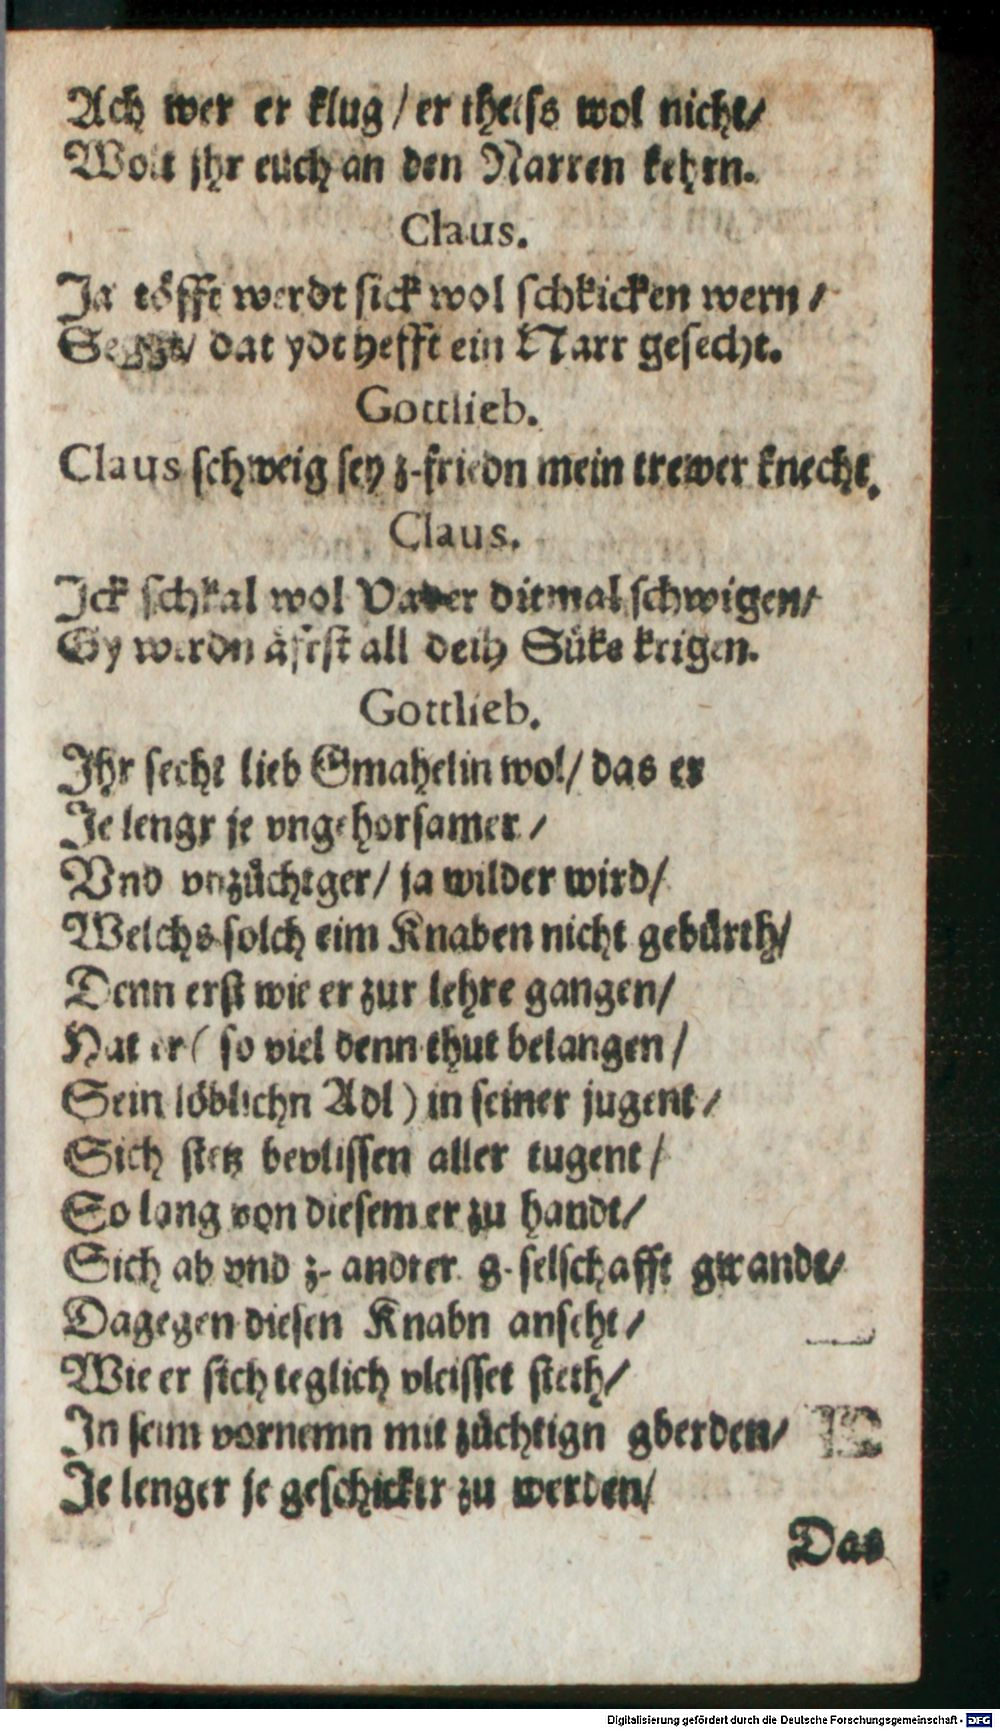 Ach wer er klug / er thetſs wol nicht /
Wolt jhr euch an den Narren kehrn.
Claus.
Ja töfft werdt ſick wol ſchkicken wern /
Seggt / dat ydt hefft ein Narr geſecht.
Gottlieb.
Claus ſchweig ſey z-friedn mein trewer knecht.
Claus.
Ick ſchkal wol Vader ditmal ſchwigen /
Gy werdn äfrſt all deih Süke krigen.
Gottlieb.
Ihr ſecht lieb Gmahelin wol / das er
Je lengr je vngehorſamer /
Vnd vnzüchtger / ja wilder wird /
Welchs ſolch eim Knaben nicht gebürth /
Denn erſt wie er zur lehre gangen /
Hat er ( ſo viel denn thut belangen /
Sein löblichn Adl ) in ſeiner jugent /
Sich ſtetz bevliſſen aller tugent /
So lang von dieſem er zu handt /
Sich ab vnd z- andrer g-ſelſchafft gwandt /
Dagegen dieſen Knabn anſeht /
Wie er ſich teglich vleiſſet ſteth /
In ſeim vornemn mit züchtign gberden /
Je lenger je geſchickter zu werden /
Das
Digitalisierung gefördert durch die Deutsche Forschungsgemeinschaft - DFG